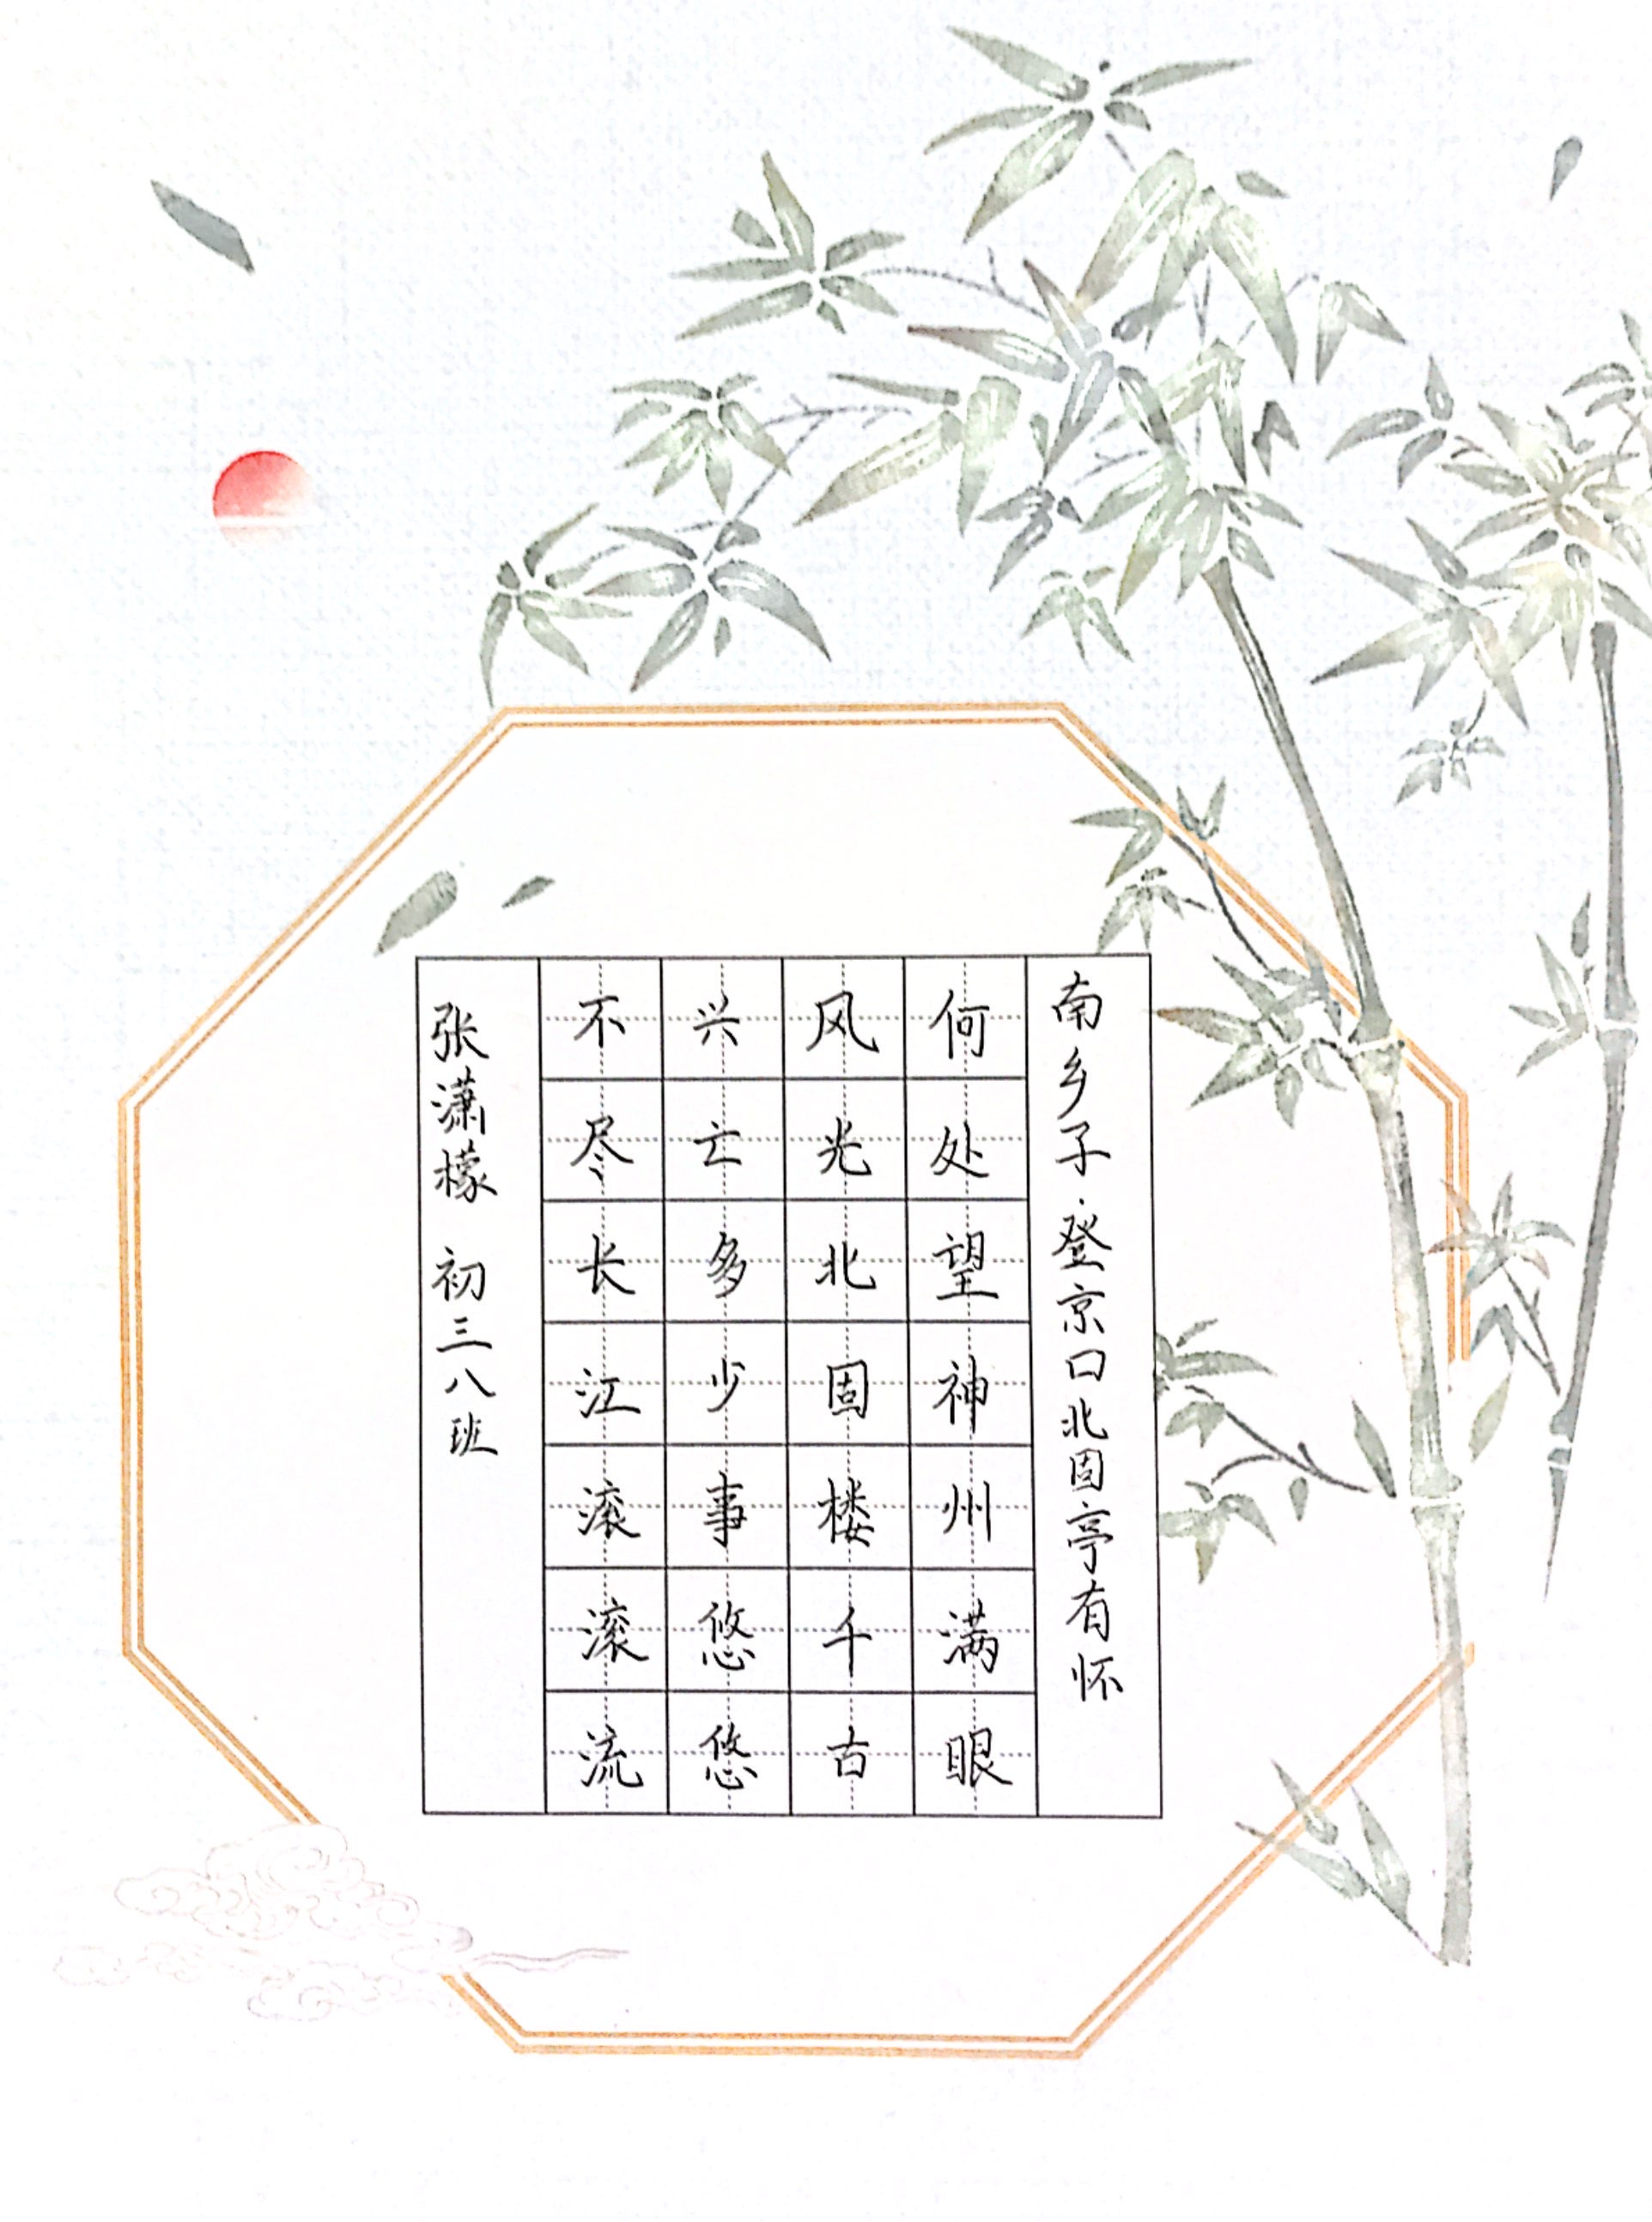 南乡子·登京口北固亭有怀
何处望神州满眼
风光北固楼千古
兴亡多少事悠悠
不尽长江滚滚流
张潇檬 初三八班